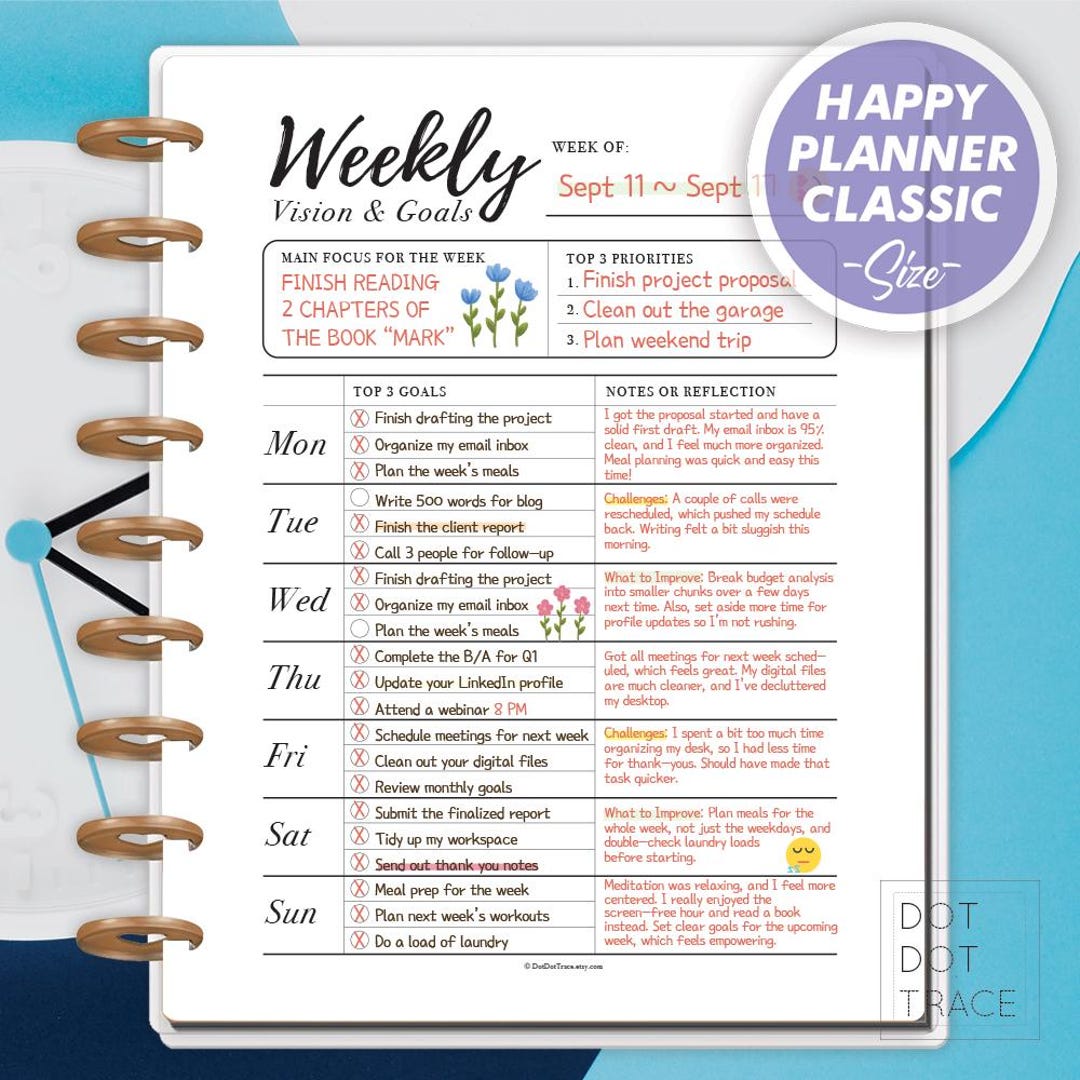 HAPPY
PLANNER
CLASSIC
-Size-
Weekly
Vision & Goals
WEEK OF:
Sept 11 ~ Sept 17
MAIN FOCUS FOR THE WEEK
FINISH READING
2 CHAPTERS OF
THE BOOK “MARK”
TOP 3 PRIORITIES
1. Finish project proposal
2. Clean out the garage
3. Plan weekend trip
TOP 3 GOALS
NOTES OR REFLECTION
Mon
Finish drafting the project
Organize my email inbox
Plan the week's meals
I got the proposal started and have a
solid first draft. My email inbox is 95%
clean, and I feel much more organized.
Meal planning was quick and easy this
time!
Tue
Write 500 words for blog
Finish the client report
Call 3 people for follow-up
Challenges: A couple of calls were
rescheduled, which pushed my schedule
back. Writing felt a bit sluggish this
morning.
Wed
Finish drafting the project
Organize my email inbox
Plan the week's meals
What to Improve: Break budget analysis
into smaller chunks over a few days
next time. Also, set aside more time for
profile updates so I'm not rushing.
Thu
Complete the B/A for Q1
Update your LinkedIn profile
Attend a webinar 8 PM
Got all meetings for next week sched-
uled, which feels great. My digital files
are much cleaner, and I've decluttered
my desktop.
Fri
Schedule meetings for next week
Clean out your digital files
Review monthly goals
Challenges: I spent a bit too much time
organizing my desk, so I had less time
for thank-yous. Should have made that
task quicker.
Sat
Submit the finalized report
Tidy up my workspace
Send out thank you notes
What to Improve: Plan meals for the
whole week, not just the weekdays, and
double-check laundry loads
before starting.
Sun
Meal prep for the week
Plan next week's workouts
Do a load of laundry
Meditation was relaxing, and I feel more
centered. I really enjoyed the
screen-free hour and read a book
instead. Set clear goals for the upcoming
week, which feels empowering.
© DotDotTrace.etsy.com
DOT
DOT
TRACE